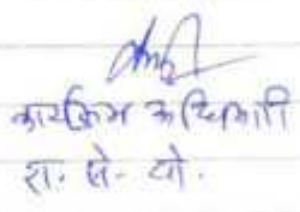 कार्यक्रम अधिकारी
रा. से. यो.